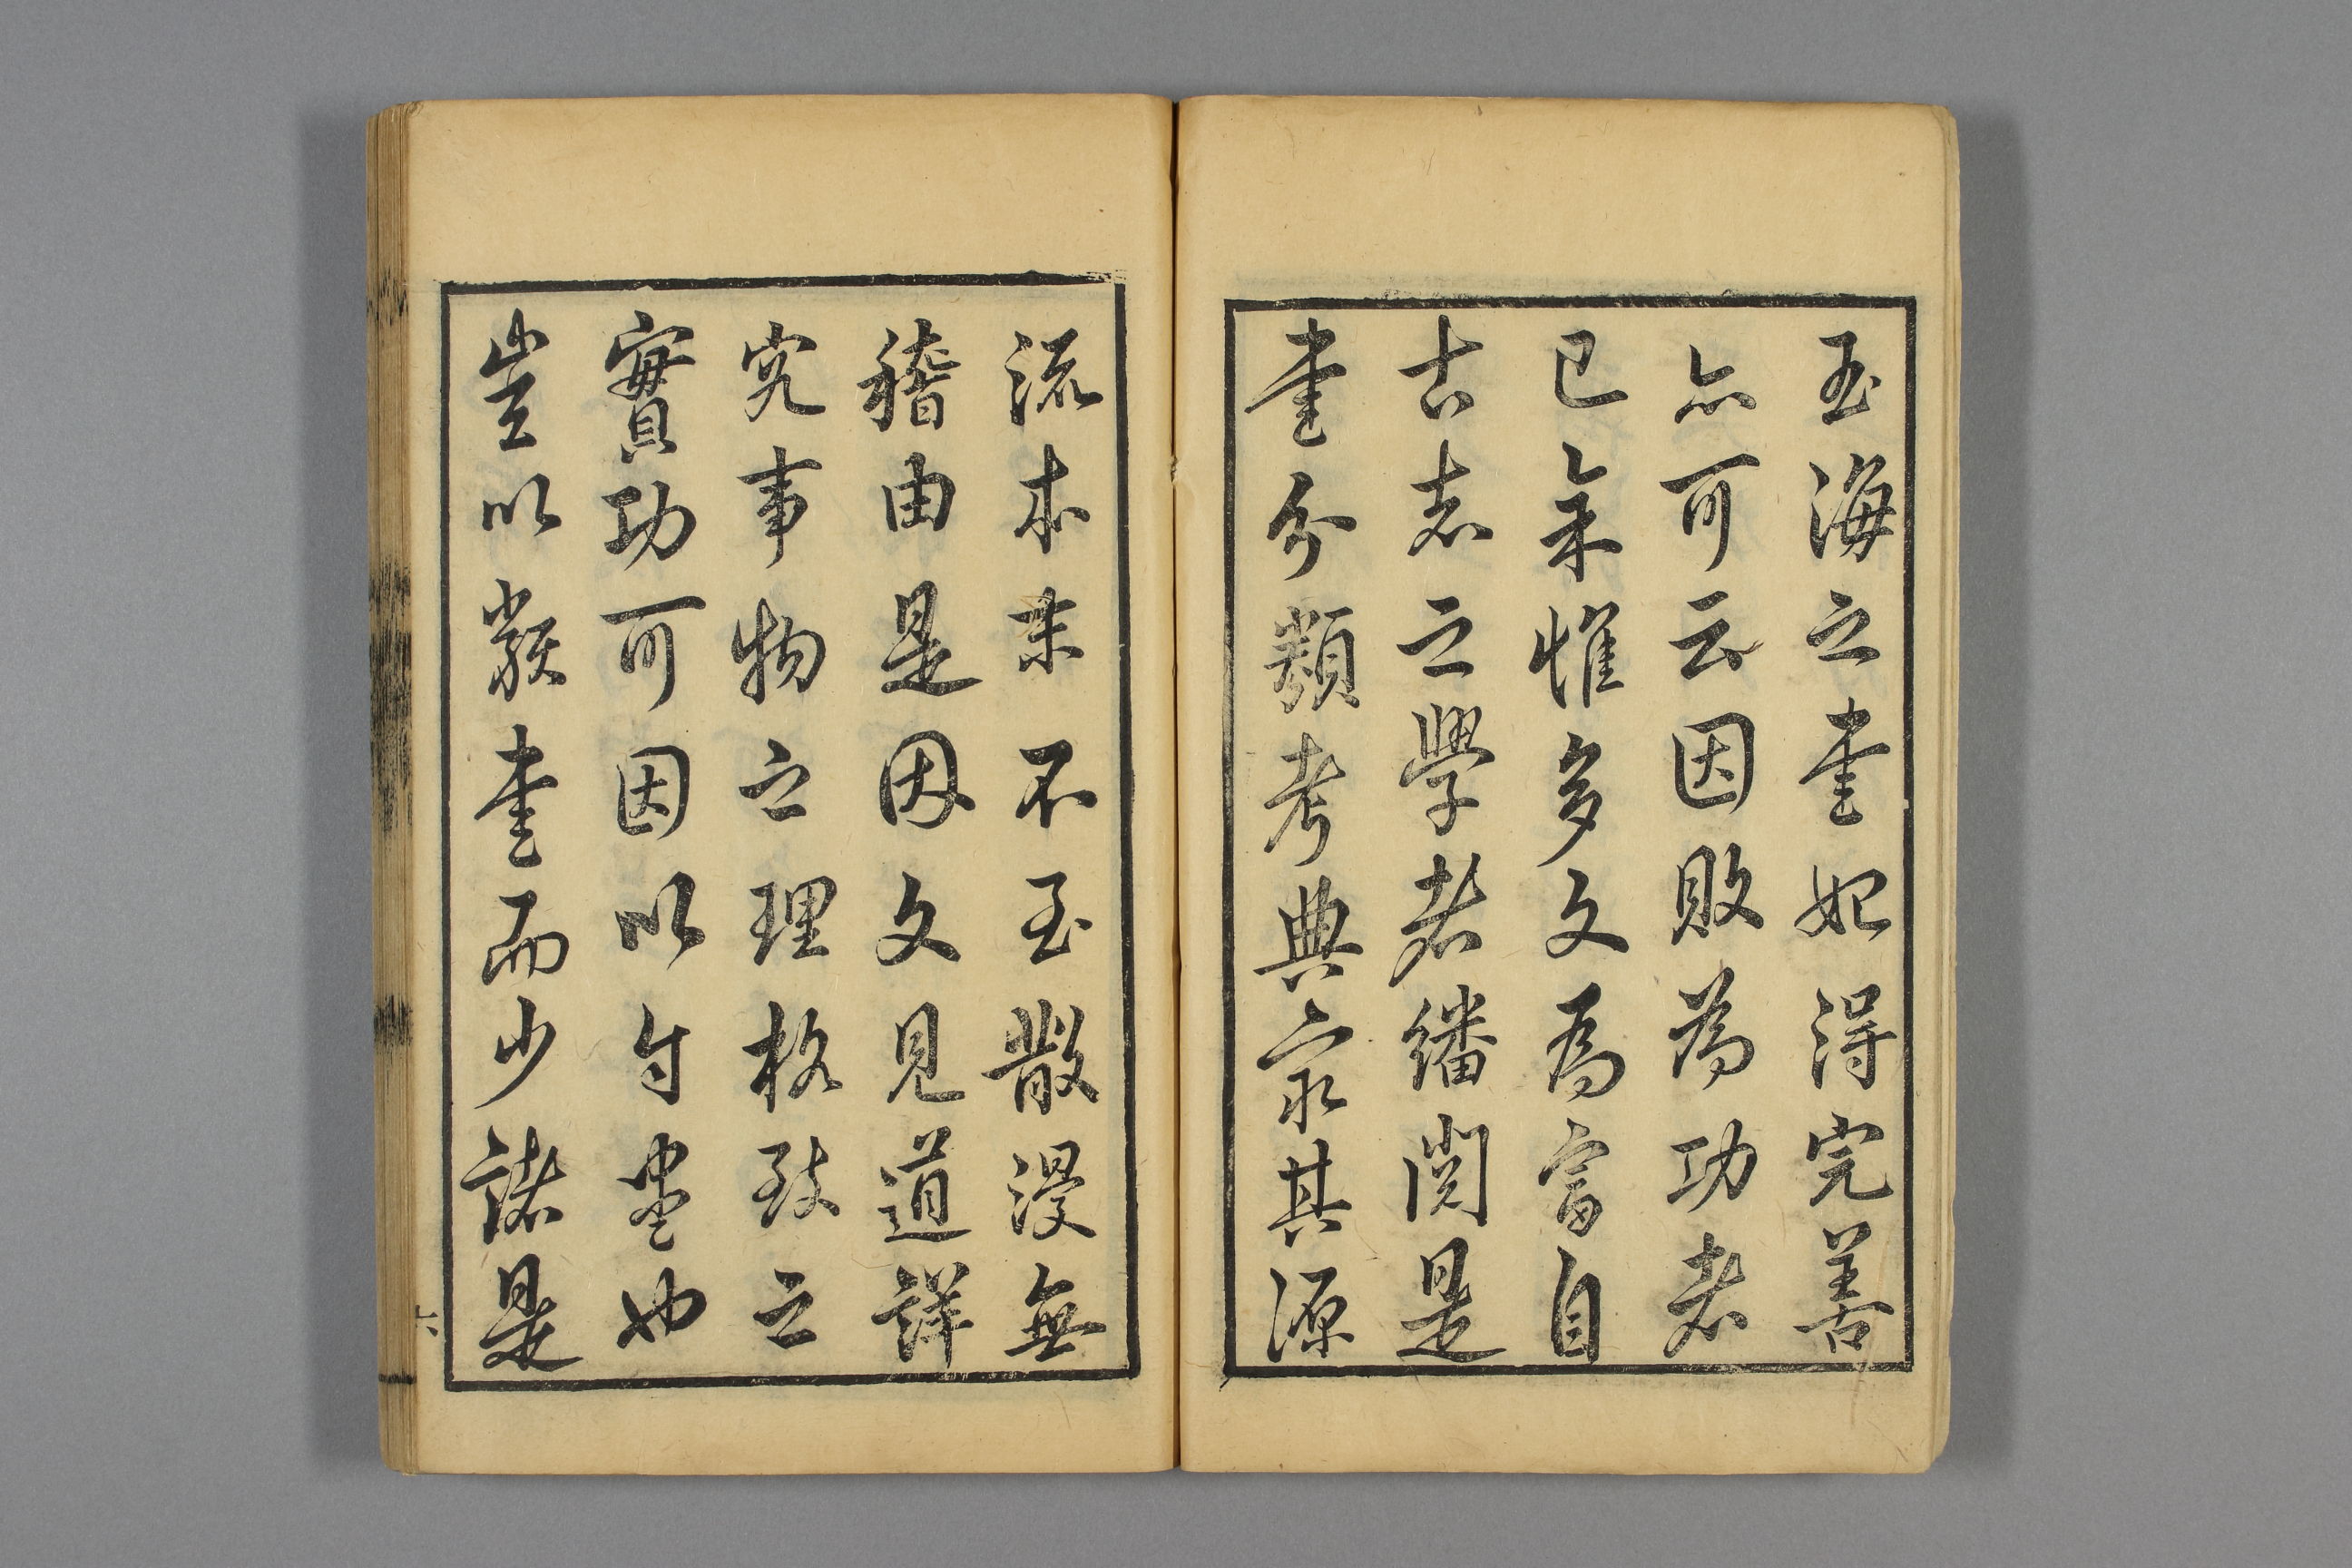 玉海之書妃得完善
亦可云因敗為功者
已余惟多文為富自
古志之學者繙閱是
書分類考典家其源
流本末不至散漫無
稽由是因文見道詳
究事物之理格致之
實功可因以自盡也
豈以叢書而少諸是
六